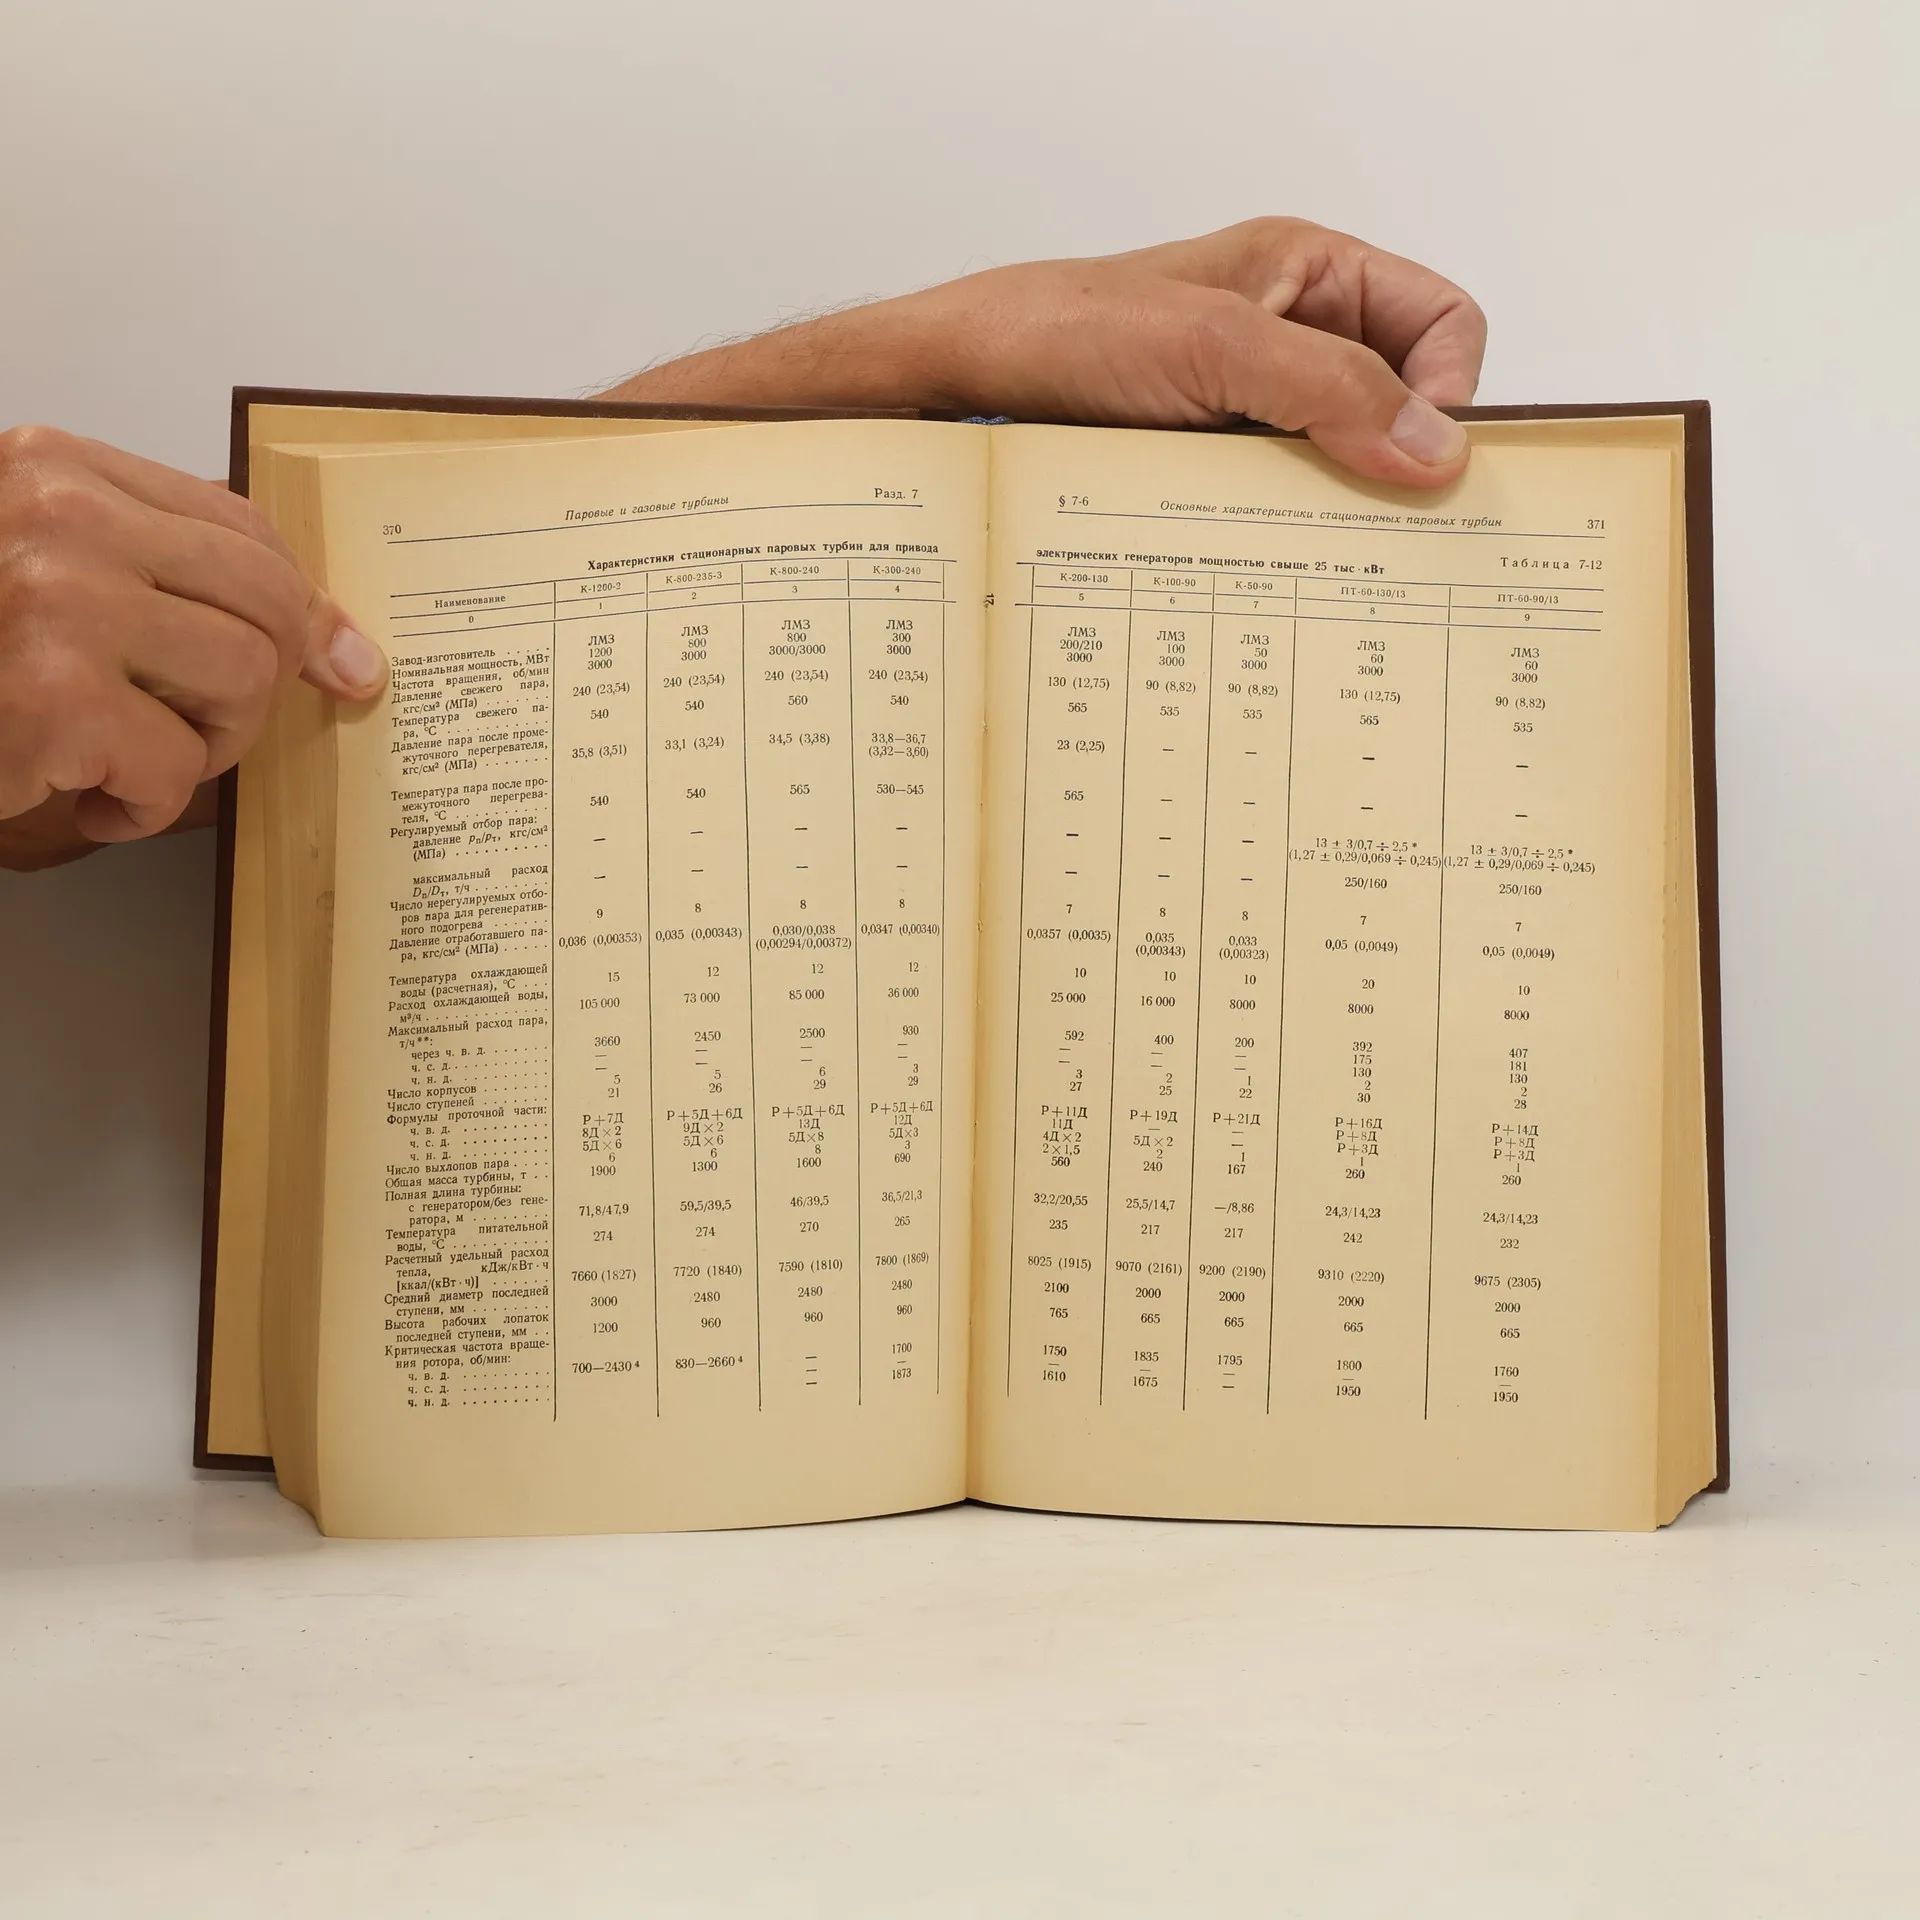 370 Паровые и газовые турбины Разд. 7
Характеристики стационарных паровых турбин для привода
Наименование К-1200-2 К-800-235-3 К-800-240 К-300-240
0 1 2 3 4
Завод-изготовитель . . . . . ЛМЗ ЛМЗ ЛМЗ ЛМЗ
Номинальная мощность, МВт 1200 800 800 300
Частота вращения, об/мин 3000 3000 3000/3000 3000
Давление свежего пара,
кгс/см² (МПа) . . . . . . . 240 (23,54) 240 (23,54) 240 (23,54) 240 (23,54)
Температура свежего па-
ра, °С . . . . . . . . . . . 540 540 560 540
Давление пара после проме-
жуточного перегревателя,
кгс/см² (МПа) . . . . . . . 35,8 (3,51) 33,1 (3,24) 34,5 (3,38) 33,8—36,7
(3,32—3,60)
Температура пара после про-
межуточного перегрева-
теля, °С . . . . . . . . . . 540 540 565 530—545
Регулируемый отбор пара:
давление pп/pт, кгс/см²
(МПа) . . . . . . . . . . — — — —
максимальный расход
Dп/Dт, т/ч . . . . . . . . — — — —
Число нерегулируемых отбо-
ров пара для регенератив-
ного подогрева . . . . . . 9 8 8 8
Давление отработавшего па-
ра, кгс/см² (МПа) . . . . . 0,036 (0,00353) 0,035 (0,00343) 0,030/0,038 0,0347 (0,00340)
(0,00294/0,00372)
Температура охлаждающей
воды (расчетная), °С . . . 15 12 12 12
Расход охлаждающей воды,
м³/ч . . . . . . . . . . . . 105 000 73 000 85 000 36 000
Максимальный расход пара,
т/ч**:
через ч. в. д. . . . . . . 3660 2450 2500 930
ч. с. д. . . . . . . . . . — — — —
ч. н. д. . . . . . . . . . — — — —
Число корпусов . . . . . . . 5 5 6 3
Число ступеней . . . . . . . 21 26 29 29
Формулы проточной части:
ч. в. д. . . . . . . . . . Р+7Д Р+5Д+6Д Р+5Д+6Д Р+5Д+6Д
ч. с. д. . . . . . . . . . 8Д×2 9Д×2 13Д 12Д
ч. н. д. . . . . . . . . . 5Д×6 5Д×6 5Д×8 5Д×3
Число выхлопов пара . . . . 6 6 8 3
Общая масса турбины, т . . 1900 1300 1600 690
Полная длина турбины:
с генератором/без гене-
ратора, м . . . . . . . . 71,8/47,9 59,5/39,5 46/39,5 36,5/21,3
Температура питательной
воды, °С . . . . . . . . . . 274 274 270 265
Расчетный удельный расход
тепла, кДж/кВт·ч
[ккал/(кВт·ч)] . . . . . . 7660 (1827) 7720 (1840) 7590 (1810) 7800 (1869)
Средний диаметр последней
ступени, мм . . . . . . . . 3000 2480 2480 2480
Высота рабочих лопаток
последней ступени, мм . . 1200 960 960 960
Критическая частота враще-
ния ротора, об/мин:
ч. в. д. . . . . . . . . . 700—2430⁴ 830—2660⁴ — 1700
ч. с. д. . . . . . . . . . — —
ч. н. д. . . . . . . . . . — 1873
12*
§ 7-6 Основные характеристики стационарных паровых турбин 371
электрических генераторов мощностью свыше 25 тыс·кВт Таблица 7-12
К-200-130 К-100-90 К-50-90 ПТ-60-130/13 ПТ-60-90/13
5 6 7 8 9
ЛМЗ ЛМЗ ЛМЗ ЛМЗ ЛМЗ
200/210 100 50 60 60
3000 3000 3000 3000 3000
130 (12,75) 90 (8,82) 90 (8,82) 130 (12,75) 90 (8,82)
565 535 535 565 535
23 (2,25) — — — —
565 — — — —
— — — 13 ± 3/0,7 ÷ 2,5 * 13 ± 3/0,7 ÷ 2,5 *
(1,27 ± 0,29/0,069 ÷ 0,245) (1,27 ± 0,29/0,069 ÷ 0,245)
— — — 250/160 250/160
7 8 8 7 7
0,0357 (0,0035) 0,035 0,033 0,05 (0,0049) 0,05 (0,0049)
(0,00343) (0,00323)
10 10 10 20 10
25 000 16 000 8000 8000 8000
592 400 200 392 407
— — — 175 181
— — — 130 130
3 2 1 2 2
27 25 22 30 28
Р+11Д Р+19Д Р+21Д Р+16Д Р+14Д
11Д — — Р+8Д Р+8Д
4Д×2 5Д×2 — Р+3Д Р+3Д
2×1,5 2 1 1 1
560 240 167 260 260
32,2/20,55 25,5/14,7 —/8,86 24,3/14,23 24,3/14,23
235 217 217 242 232
8025 (1915) 9070 (2161) 9200 (2190) 9310 (2220) 9675 (2305)
2100 2000 2000 2000 2000
765 665 665 665 665
1750 1835 1795 1800 1760
— — — — —
1610 1675 — 1950 1950